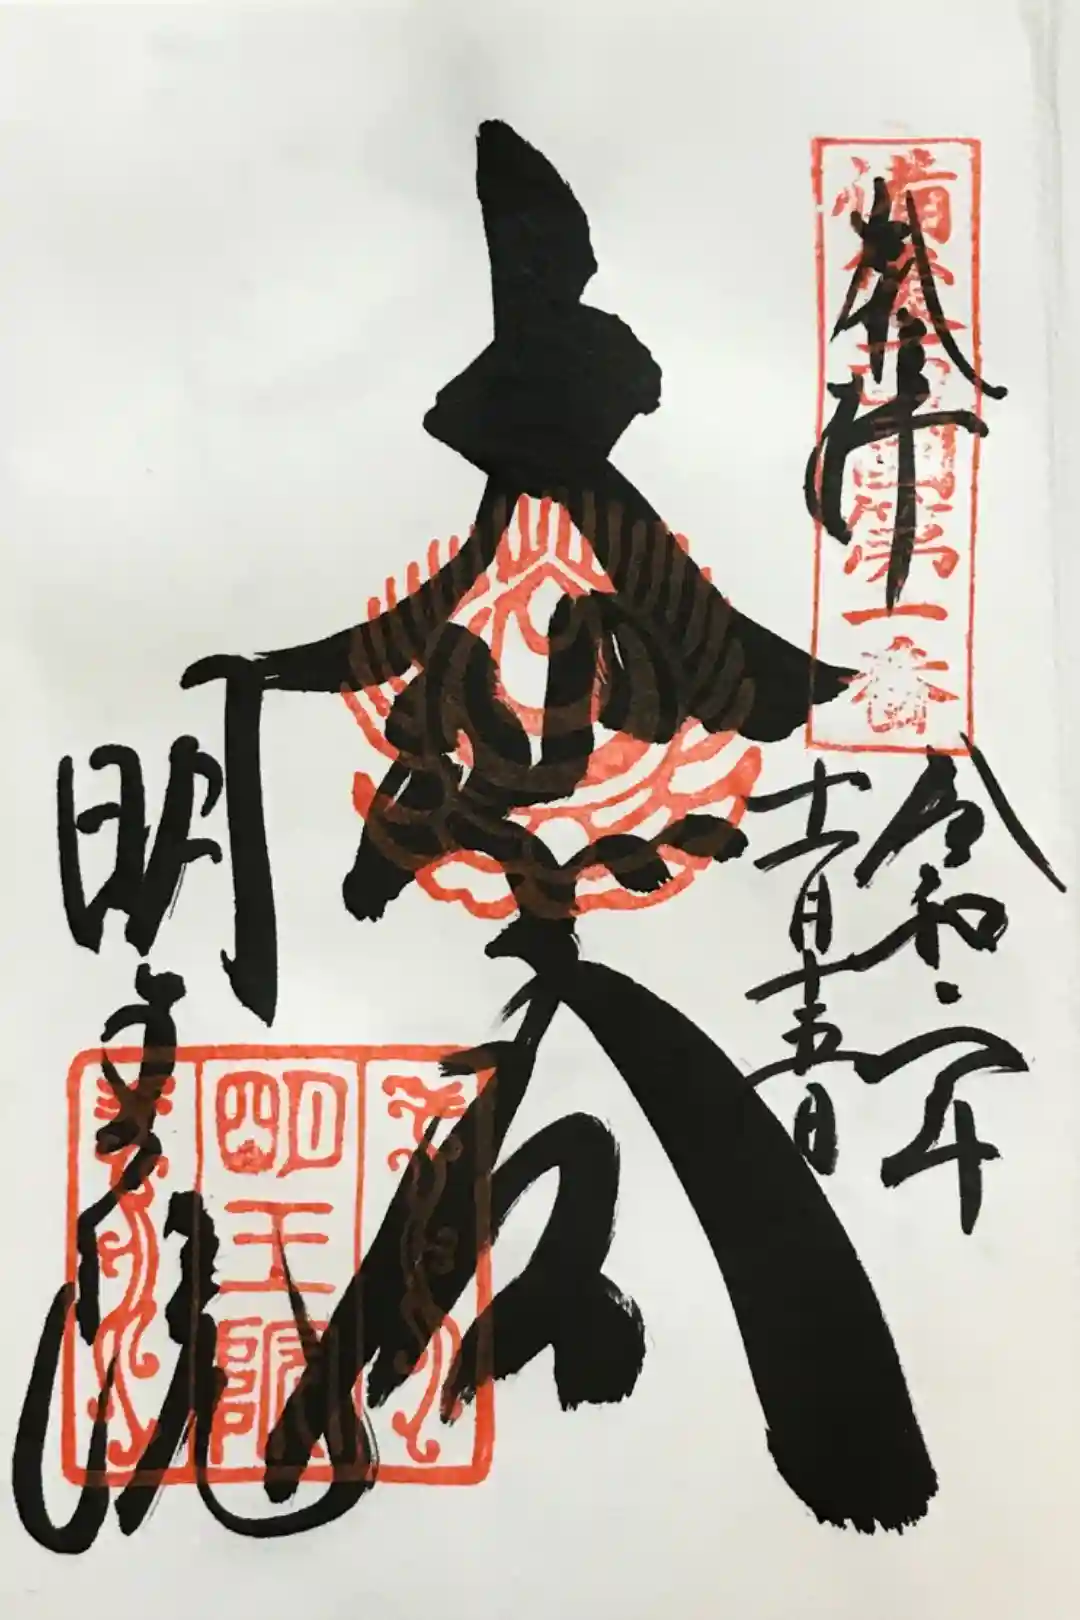 備後西国第一番
奉拝
令和二年
十一月十五日
明王院
明王院